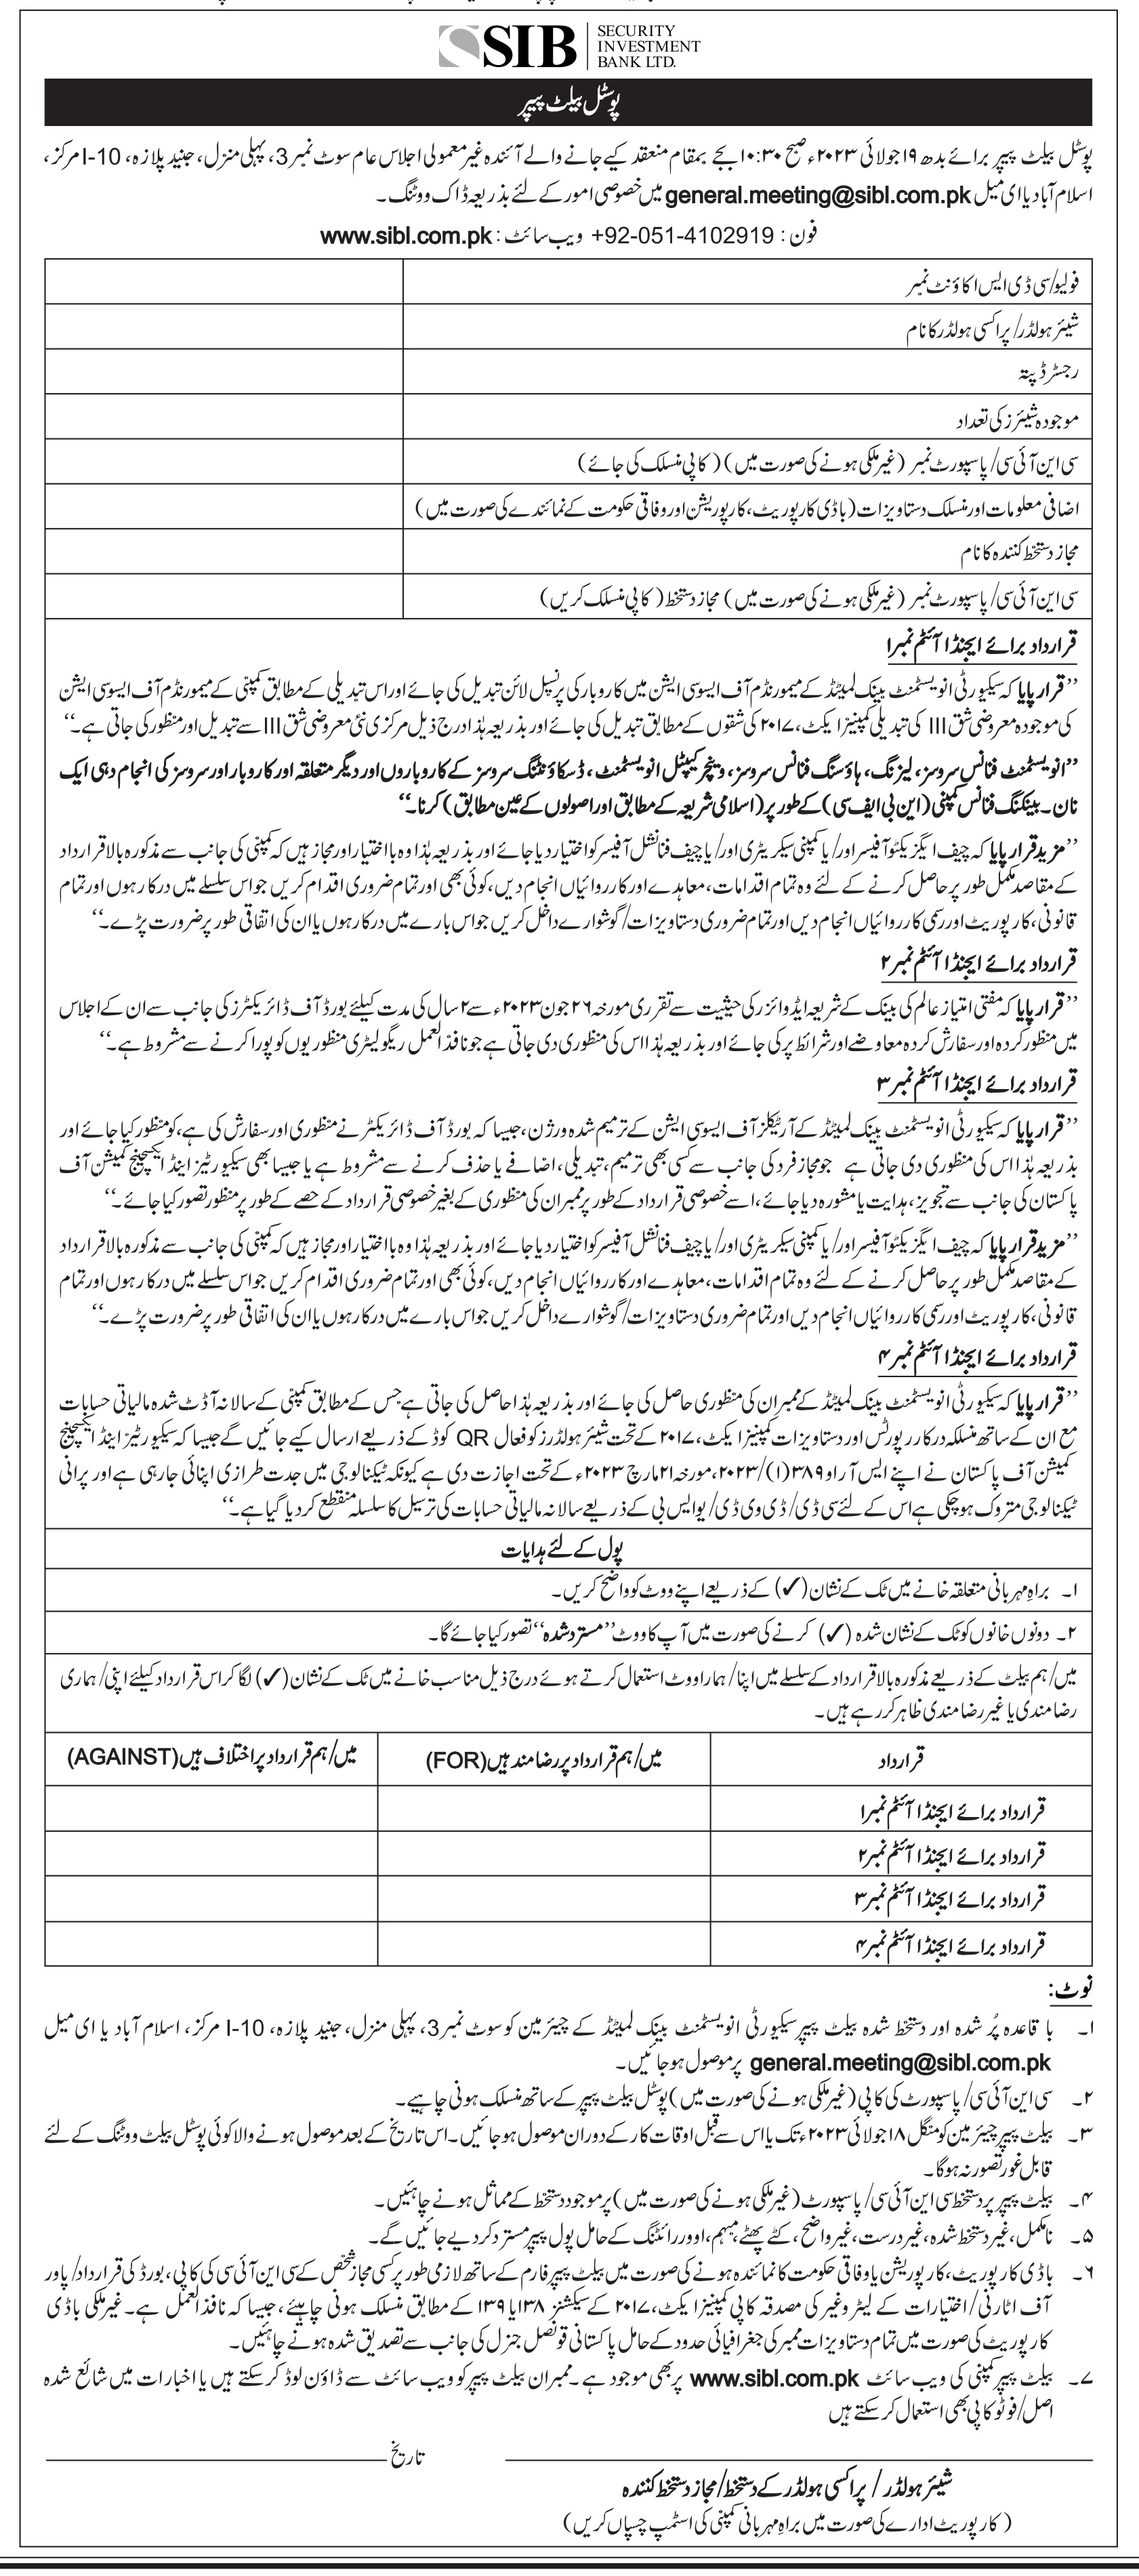 SIB SECURITY
INVESTMENT
BANK LTD.
پوسٹل بیلٹ پیپر
پوسٹل بیلٹ پیپر برائے بدھ ۱۹ جولائی ۲۰۲۳ء صبح ۱۰:۳۰ بجے بمقام منعقد کیے جانے والے آئندہ غیر معمولی اجلاس عام سوٹ نمبر 3، پہلی منزل، جنید پلازہ، I-10 مرکز،
اسلام آباد یا ای میل general.meeting@sibl.com.pk میں خصوصی امور کے لئے بذریعہ ڈاک ووٹنگ۔
فون : 4102919-051-92+ ویب سائٹ : www.sibl.com.pk
فولیو/سی ڈی ایس اکاؤنٹ نمبر
شیئر ہولڈر/ پراکسی ہولڈر کا نام
رجسٹرڈ پتہ
موجودہ شیئرز کی تعداد
سی این آئی سی/ پاسپورٹ نمبر (غیر ملکی ہونے کی صورت میں) (کاپی منسلک کی جائے)
اضافی معلومات اور منسلک دستاویزات (باڈی کارپوریٹ، کارپوریشن اور وفاقی حکومت کے نمائندے کی صورت میں)
مجاز دستخط کنندہ کا نام
سی این آئی سی/ پاسپورٹ نمبر (غیر ملکی ہونے کی صورت میں) مجاز دستخط (کاپی منسلک کریں)
قرارداد برائے ایجنڈا آئٹم نمبر۱
’’قرار پایا کہ سیکیورٹی انویسٹمنٹ بینک لمیٹڈ کے میمورنڈم آف ایسوسی ایشن میں کاروبار کی پرنسپل لائن تبدیل کی جائے اور اس تبدیلی کے مطابق کمپنی کے میمورنڈم آف ایسوسی ایشن
کی موجودہ معروضی شق III کی تبدیلی کمپنیز ایکٹ، ۲۰۱۷ کی شقوں کے مطابق تبدیل کی جائے اور بذریعہ ہٰذا درج ذیل مرکزی نئی معروضی شق III سے تبدیل اور منظور کی جاتی ہے۔‘‘
’’انویسٹمنٹ فنانس سروسز، لیزنگ، ہاؤسنگ فنانس سروسز، وینچر کیپٹل انویسٹمنٹ، ڈسکاؤنٹنگ سروسز کے کاروباروں اور دیگر متعلقہ اور کاروبار اور سروسز کی انجام دہی ایک
نان۔ بینکنگ فنانس کمپنی (این بی ایف سی) کے طور پر (اسلامی شریعہ کے مطابق اور اصولوں کے عین مطابق) کرنا۔‘‘
’’مزید قرار پایا کہ چیف ایگزیکٹو آفیسر اور/ یا کمپنی سیکریٹری اور/ یا چیف فنانشل آفیسر کو اختیار دیا جائے اور بذریعہ ہٰذا وہ با اختیار اور مجاز ہیں کہ کمپنی کی جانب سے مذکورہ بالا قرارداد
کے مقاصد مکمل طور پر حاصل کرنے کے لئے وہ تمام اقدامات، معاہدے اور کارروائیاں انجام دیں، کوئی بھی اور تمام ضروری اقدام کریں جو اس سلسلے میں درکار ہوں اور تمام
قانونی، کارپوریٹ اور رسمی کارروائیاں انجام دیں اور تمام ضروری دستاویزات/ گوشوارے داخل کریں جو اس بارے میں درکار ہوں یا ان کی اتفاقی طور پر ضرورت پڑے۔‘‘
قرارداد برائے ایجنڈا آئٹم نمبر۲
’’قرار پایا کہ مفتی امتیاز عالم کی بینک کے شریعہ ایڈوائزر کی حیثیت سے تقرری مورخہ ۲۶ جون ۲۰۲۳ء سے ۲ سال کی مدت کیلئے بورڈ آف ڈائریکٹرز کی جانب سے ان کے اجلاس
میں منظور کردہ اور سفارش کردہ معاوضے اور شرائط پر کی جائے اور بذریعہ ہٰذا اس کی منظوری دی جاتی ہے جو نافذ العمل ریگولیٹری منظوریوں کو پورا کرنے سے مشروط ہے۔‘‘
قرارداد برائے ایجنڈا آئٹم نمبر۳
’’قرار پایا کہ سیکیورٹی انویسٹمنٹ بینک لمیٹڈ کے آرٹیکلز آف ایسوسی ایشن کے ترمیم شدہ ورژن، جیسا کہ بورڈ آف ڈائریکٹر نے منظوری اور سفارش کی ہے، کو منظور کیا جائے اور
بذریعہ ہٰذا اس کی منظوری دی جاتی ہے جو مجاز فرد کی جانب سے کسی بھی ترمیم، تبدیلی، اضافے یا حذف کرنے سے مشروط ہے یا جیسا بھی سیکیورٹیز اینڈ ایکسچینج کمیشن آف
پاکستان کی جانب سے تجویز، ہدایت یا مشورہ دیا جائے، اسے خصوصی قرارداد کے طور پر ممبران کی منظوری کے بغیر خصوصی قرارداد کے حصے کے طور پر منظور تصور کیا جائے۔‘‘
’’مزید قرار پایا کہ چیف ایگزیکٹو آفیسر اور/ یا کمپنی سیکریٹری اور/ یا چیف فنانشل آفیسر کو اختیار دیا جائے اور بذریعہ ہٰذا وہ با اختیار اور مجاز ہیں کہ کمپنی کی جانب سے مذکورہ بالا قرارداد
کے مقاصد مکمل طور پر حاصل کرنے کے لئے وہ تمام اقدامات، معاہدے اور کارروائیاں انجام دیں، کوئی بھی اور تمام ضروری اقدام کریں جو اس سلسلے میں درکار ہوں اور تمام
قانونی، کارپوریٹ اور رسمی کارروائیاں انجام دیں اور تمام ضروری دستاویزات/ گوشوارے داخل کریں جو اس بارے میں درکار ہوں یا ان کی اتفاقی طور پر ضرورت پڑے۔‘‘
قرارداد برائے ایجنڈا آئٹم نمبر۴
’’قرار پایا کہ سیکیورٹی انویسٹمنٹ بینک لمیٹڈ کے ممبران کی منظوری حاصل کی جائے اور بذریعہ ہذا حاصل کی جاتی ہے جس کے مطابق کمپنی کے سالانہ آڈٹ شدہ مالیاتی حسابات
مع ان کے ساتھ منسلکہ درکار رپورٹس اور دستاویزات کمپنیز ایکٹ، ۲۰۱۷ کے تحت شیئر ہولڈرز کو فعال QR کوڈ کے ذریعے ارسال کیے جائیں گے جیسا کہ سیکیورٹیز اینڈ ایکسچینج
کمیشن آف پاکستان نے اپنے ایس آر او ۳۸۹(۱)/۲۰۲۳، مورخہ ۲۱ مارچ ۲۰۲۳ء کے تحت اجازت دی ہے کیونکہ ٹیکنالوجی میں جدت طرازی اپنائی جا رہی ہے اور پرانی
ٹیکنالوجی متروک ہو چکی ہے اس کے لئے سی ڈی/ ڈی وی ڈی/ یو ایس بی کے ذریعے سالانہ مالیاتی حسابات کی ترسیل کا سلسلہ منقطع کر دیا گیا ہے۔‘‘
پول کے لئے ہدایات
۱۔ براہِ مہربانی متعلقہ خانے میں ٹک کے نشان (✓) کے ذریعے اپنے ووٹ کو واضح کریں۔
۲۔ دونوں خانوں کو ٹک کے نشان شدہ (✓) کرنے کی صورت میں آپ کا ووٹ ’’مسترد شدہ‘‘ تصور کیا جائے گا۔
میں/ ہم بیلٹ کے ذریعے مذکورہ بالا قرارداد کے سلسلے میں اپنا/ ہمارا ووٹ استعمال کرتے ہوئے درج ذیل مناسب خانے میں ٹک کے نشان (✓) لگا کر اس قرارداد کیلئے اپنی/ ہماری
رضامندی یا غیر رضامندی ظاہر کر رہے ہیں۔
قرارداد
میں/ ہم قرارداد پر رضامند ہیں (FOR)
میں/ ہم قرارداد پر اختلاف ہیں (AGAINST)
قرارداد برائے ایجنڈا آئٹم نمبر۱
قرارداد برائے ایجنڈا آئٹم نمبر۲
قرارداد برائے ایجنڈا آئٹم نمبر۳
قرارداد برائے ایجنڈا آئٹم نمبر۴
نوٹ:
۱۔ باقاعدہ پُر شدہ اور دستخط شدہ بیلٹ پیپر سیکیورٹی انویسٹمنٹ بینک لمیٹڈ کے چیئرمین کو سوٹ نمبر 3، پہلی منزل، جنید پلازہ، I-10 مرکز، اسلام آباد یا ای میل
general.meeting@sibl.com.pk پر موصول ہو جائیں۔
۲۔ سی این آئی سی/ پاسپورٹ کی کاپی (غیر ملکی ہونے کی صورت میں) پوسٹل بیلٹ پیپر کے ساتھ منسلک ہونی چاہیے۔
۳۔ بیلٹ پیپر چیئرمین کو منگل ۱۸ جولائی ۲۰۲۳ء تک یا اس سے قبل اوقات کار کے دوران موصول ہو جائیں۔ اس تاریخ کے بعد موصول ہونے والا کوئی پوسٹل بیلٹ ووٹنگ کے لئے
قابل غور تصور نہ ہوگا۔
۴۔ بیلٹ پیپر پر دستخط سی این آئی سی/ پاسپورٹ (غیر ملکی ہونے کی صورت میں) پر موجود دستخط کے مماثل ہونے چاہئیں۔
۵۔ نامکمل، غیر دستخط شدہ، غیر درست، غیر واضح، کٹے پھٹے، مبہم، اوور رائٹنگ کے حامل پول پیپر مسترد کر دیے جائیں گے۔
۶۔ باڈی کارپوریٹ، کارپوریشن یا وفاقی حکومت کا نمائندہ ہونے کی صورت میں بیلٹ پیپر فارم کے ساتھ لازمی طور پر کسی مجاز شخص کے سی این آئی سی کی کاپی، بورڈ کی قرارداد/ پاور
آف اٹارنی/ اختیارات کے لیٹر وغیر کی مصدقہ کاپی کمپنیز ایکٹ، ۲۰۱۷ کے سیکشنز ۱۳۸ یا ۱۳۹ کے مطابق منسلک ہونی چاہیئے، جیسا کہ نافذ العمل ہے۔ غیر ملکی باڈی
کارپوریٹ کی صورت میں تمام دستاویزات ممبر کی جغرافیائی حدود کے حامل پاکستانی قونصل جنرل کی جانب سے تصدیق شدہ ہونے چاہئیں۔
۷۔ بیلٹ پیپر کمپنی کی ویب سائٹ www.sibl.com.pk پر بھی موجود ہے۔ ممبران بیلٹ پیپر کو ویب سائٹ سے ڈاؤن لوڈ کر سکتے ہیں یا اخبارات میں شائع شدہ
اصل/ فوٹو کاپی بھی استعمال کر سکتے ہیں
تاریخ
شیئر ہولڈر/ پراکسی ہولڈر کے دستخط/ مجاز دستخط کنندہ
(کارپوریٹ ادارے کی صورت میں براہِ مہربانی کمپنی کی اسٹمپ چسپاں کریں)